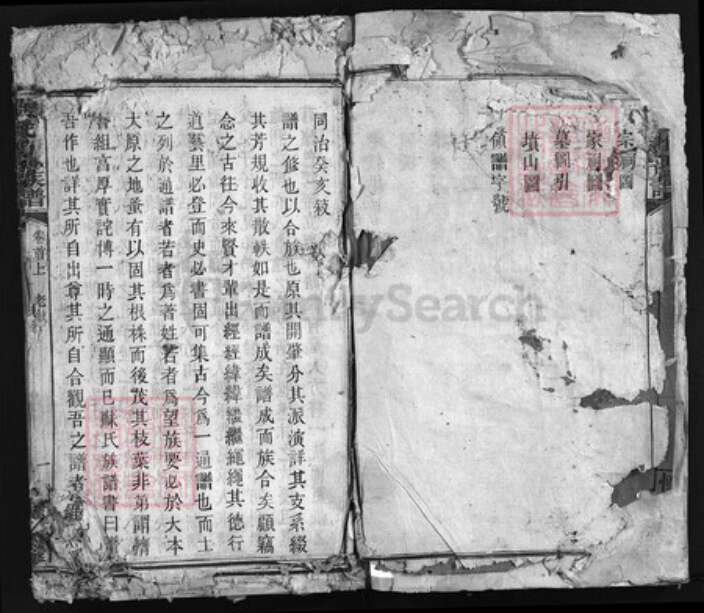 宗祠圖
家祠圖
墓圖引
墳山圖
領譜字號
同治癸亥敍
譜之修也以合族也原其開肇分其派演詳其支系綴
其芳規收其散軼如是而譜成矣譜成而族合矣顧竊
念之古往今來賢才輩出經經緯緯繼繼繩繩其德行
道藝里必登而史必書固可集古今爲一通譜也而士
之列於通譜者若者爲著姓若者爲望族要必於大本
大原之地有以固其根株而後茂其枝葉非第謂
祖高厚實詫博一時之通顯而已蘇氏族譜書曰
吾作也詳其所自出尊其所自合觀吾之譜者
族譜
卷首上
一
FamilySearch